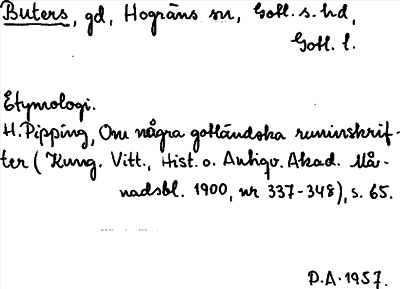 Buters, gd, Hogräns sn, Gotl. s. hd,
Gotl. l.
Etymologi.
H. Pipping, Om några gotländska runinskrif-
ter (Kung. Vitt., Hist. o. Antiqv. Akad. Må-
nadsbl. 1900, nr 337-348), s. 65.
D.A. 1957.